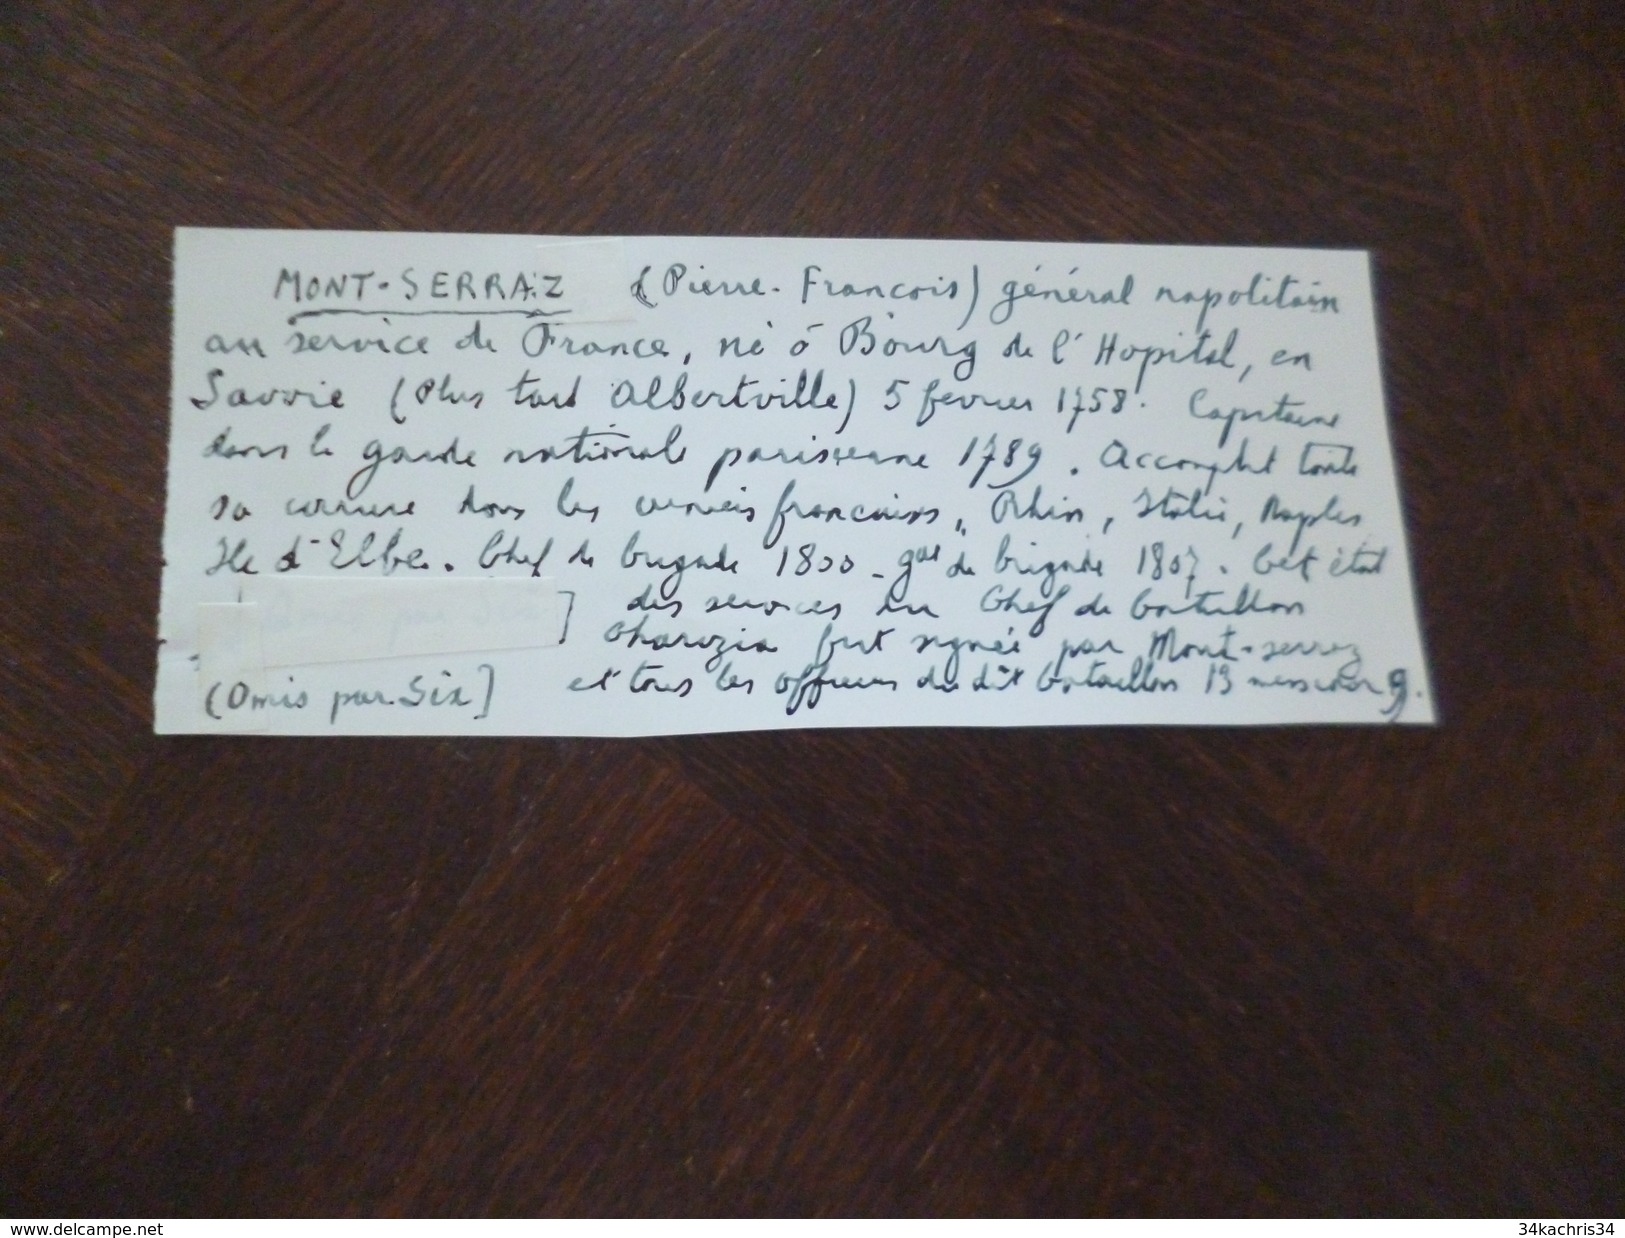 MONT-SERRAZ (Pierre-Francois) général napolitain
au service de France, né à Bourg de l'Hopital, en
Savoie (Plus tard Albertville) 5 fevrier 1758. Capitaine
dans la garde nationale parisienne 1789. Accomplit toute
sa carriere dans les armées francaises, Rhin, Italie, Naples
Ile d'Elbe. Chef de brigade 1800 - gal de brigade 1807. Cet état
des services du Chef de bataillon
fut signée par Mont-serraz
et tous les officiers du dit bataillon 13 messidor 9.
(Omis par Six]
www.delcampe.net
34kachris34